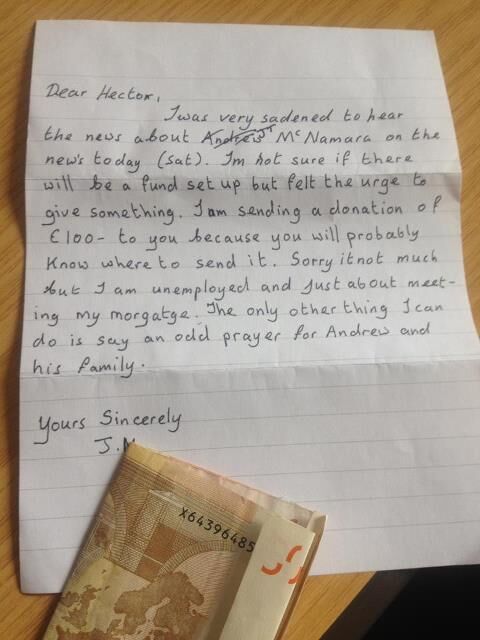 Dear Hector,
I was very sadened to hear
the news about Andrew J McNamara on the
news today (sat). Im not sure if there
will be a fund set up but felt the urge to
give something. I am sending a donation of
€100- to you because you will probably
know where to send it. Sorry it not much
but I am unemployed and just about meet-
ing my morgatge. The only other thing I can
do is say an odd prayer for Andrew and
his family.
Yours Sincerely
J.M
X64396485